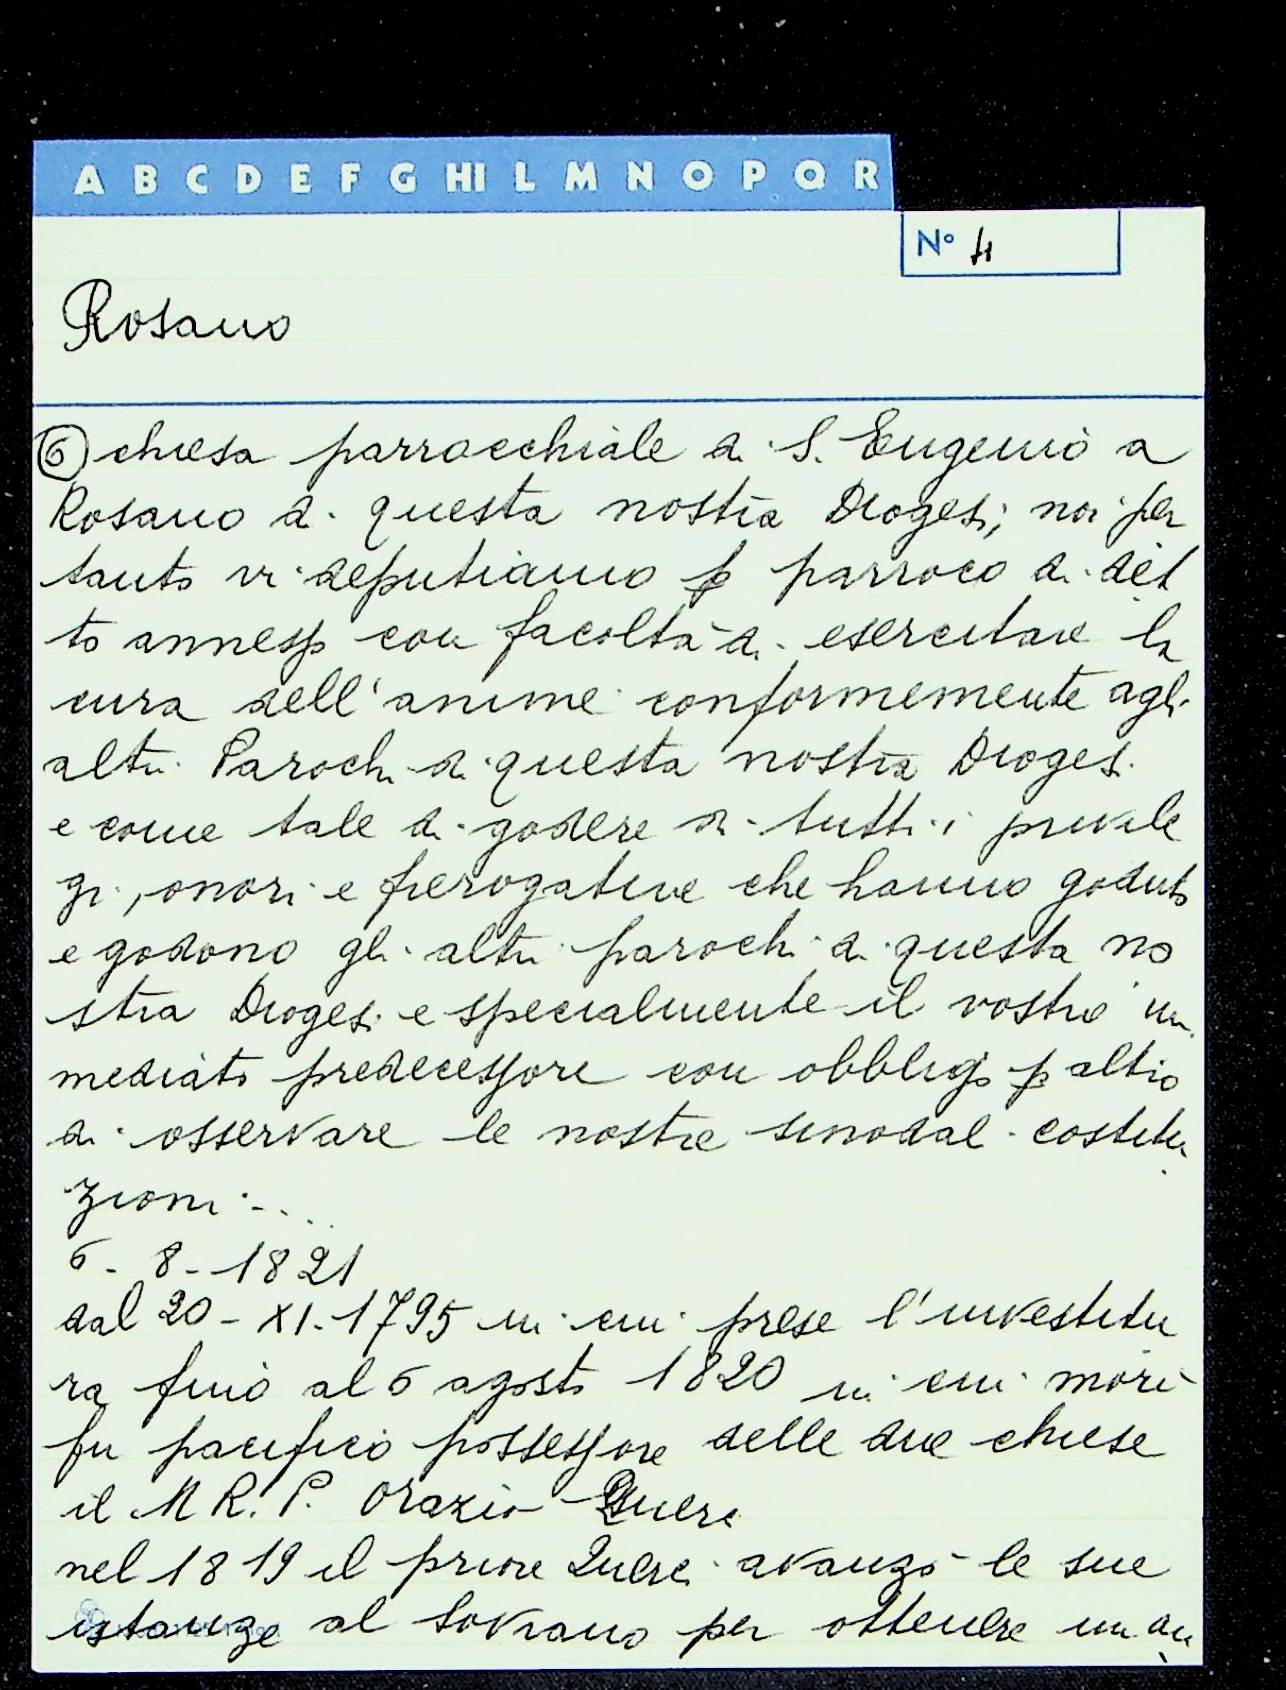 A B C D E F G HI L M N O P Q R
Nº 4
Rosano
6 chiesa parrocchiale di S. Eugenio a
Rosano di questa nostra Diogesi; noi per
tanto vi deputiamo p parroco di det
to annesso con facoltà di esercitare la
cura dell'anime conformemente agli
altri Parochi di questa nostra Diogesi
e come tale di godere di tutti i privile
gi, onori e prerogative che hanno goduto
e godono gli altri parochi di questa no
stra Diogesi e specialmente il vostro im
mediato predecessore con obbligo p altro
di osservare le nostre sinodali costitu
zioni....
6-8-1821
dal 20-XI-1795 in cui prese l'investitu
ra finò al 6 agosto 1820 in cui morì
fu pacifico possessore delle due chiese
il M R. P. Orazio
nel 1819 il priore avanzò le sue
istanze al Sovrano per ottenere un au